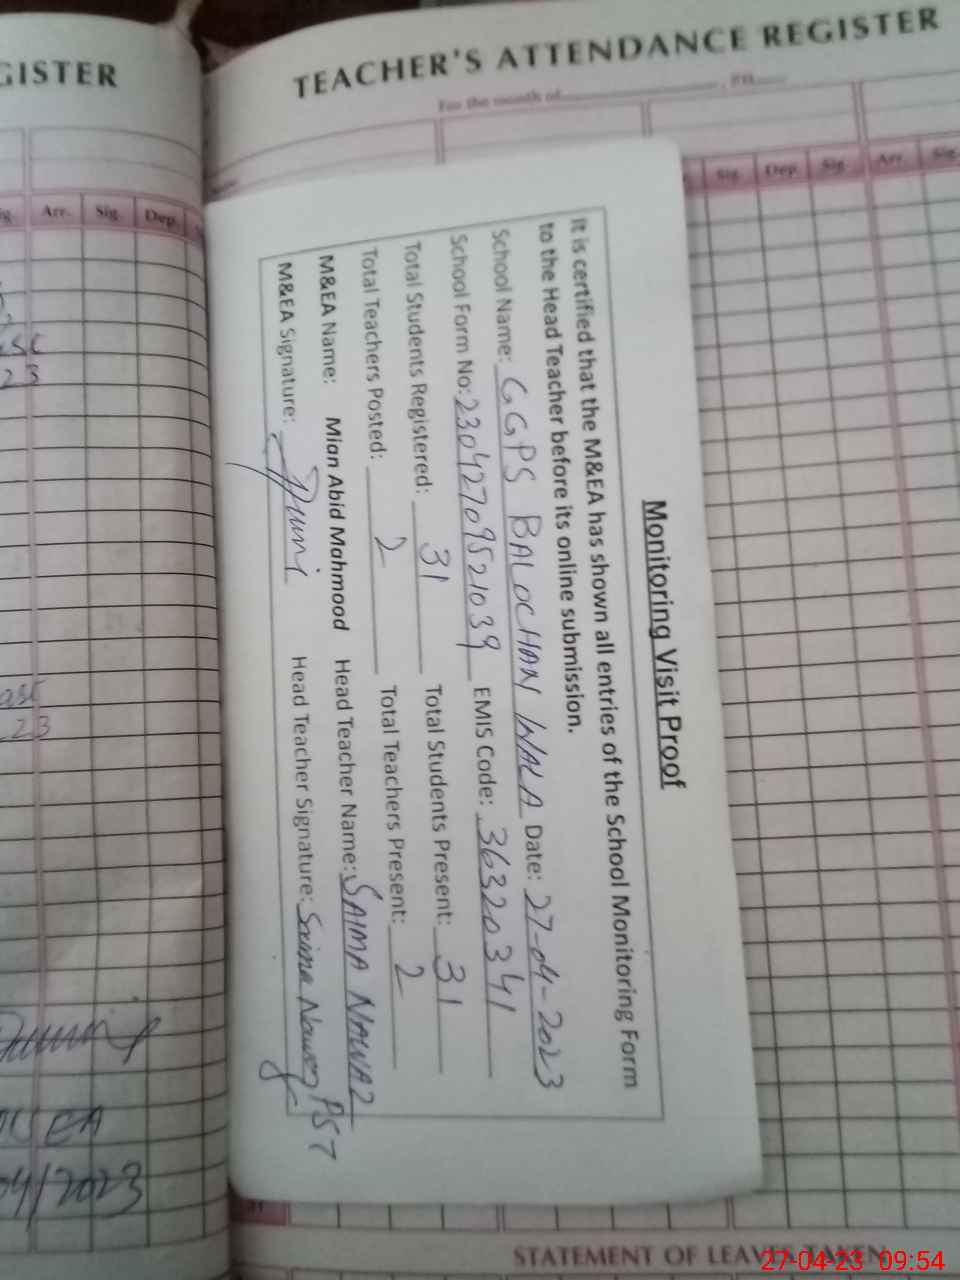 GISTER
TEACHER'S ATTENDANCE REGISTER
For the month of
Sig. Dep. Sig. Arr. Sig.
Arr. Sig. Dep.
Monitoring Visit Proof
It is certified that the M&EA has shown all entries of the School Monitoring Form
to the Head Teacher before its online submission.
School Name: GGPS BALOCHAN WALA Date: 27-04-2023
School Form No: 23042709521039 EMIS Code: 36320341
Total Students Registered: 31 Total Students Present: 31
Total Teachers Posted: 2 Total Teachers Present: 2
M&EA Name: Mian Abid Mahmood Head Teacher Name: SAIMA NAWAZ
M&EA Signature: Head Teacher Signature: Saima Nawaz PST
23
EA
04/2023
31
STATEMENT OF LEAVES TAKEN
27-04-23 09:54